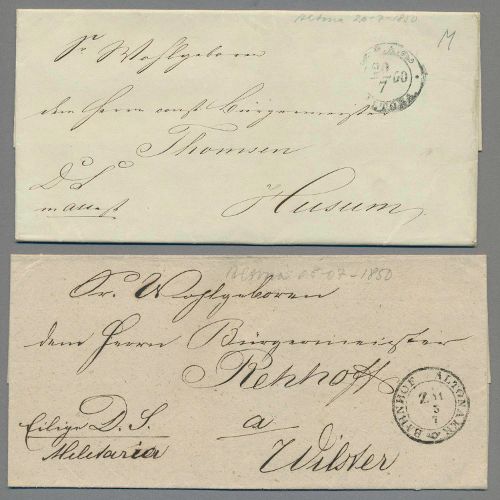 Altona 20-7-1850
M
Sr Wohlgeboren
dem Herrn const Bürgermeister
Thomsen
D. S.
m attest
Husum
20
7
ALTONA
Altona 05-07-1850
Sr. Wohlgeboren
dem Herrn Bürgermeister
Rehhoff
Eilige D. S.
a
Militaria
Wilster
ALTONAER BAHNHOF
Z. 11
5
7